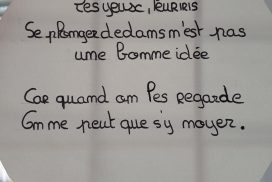 tes yeux, leur iris
Se plonger dedans n'est pas
une bonne idée
Car quand on les regarde
On ne peut que s'y noyer.